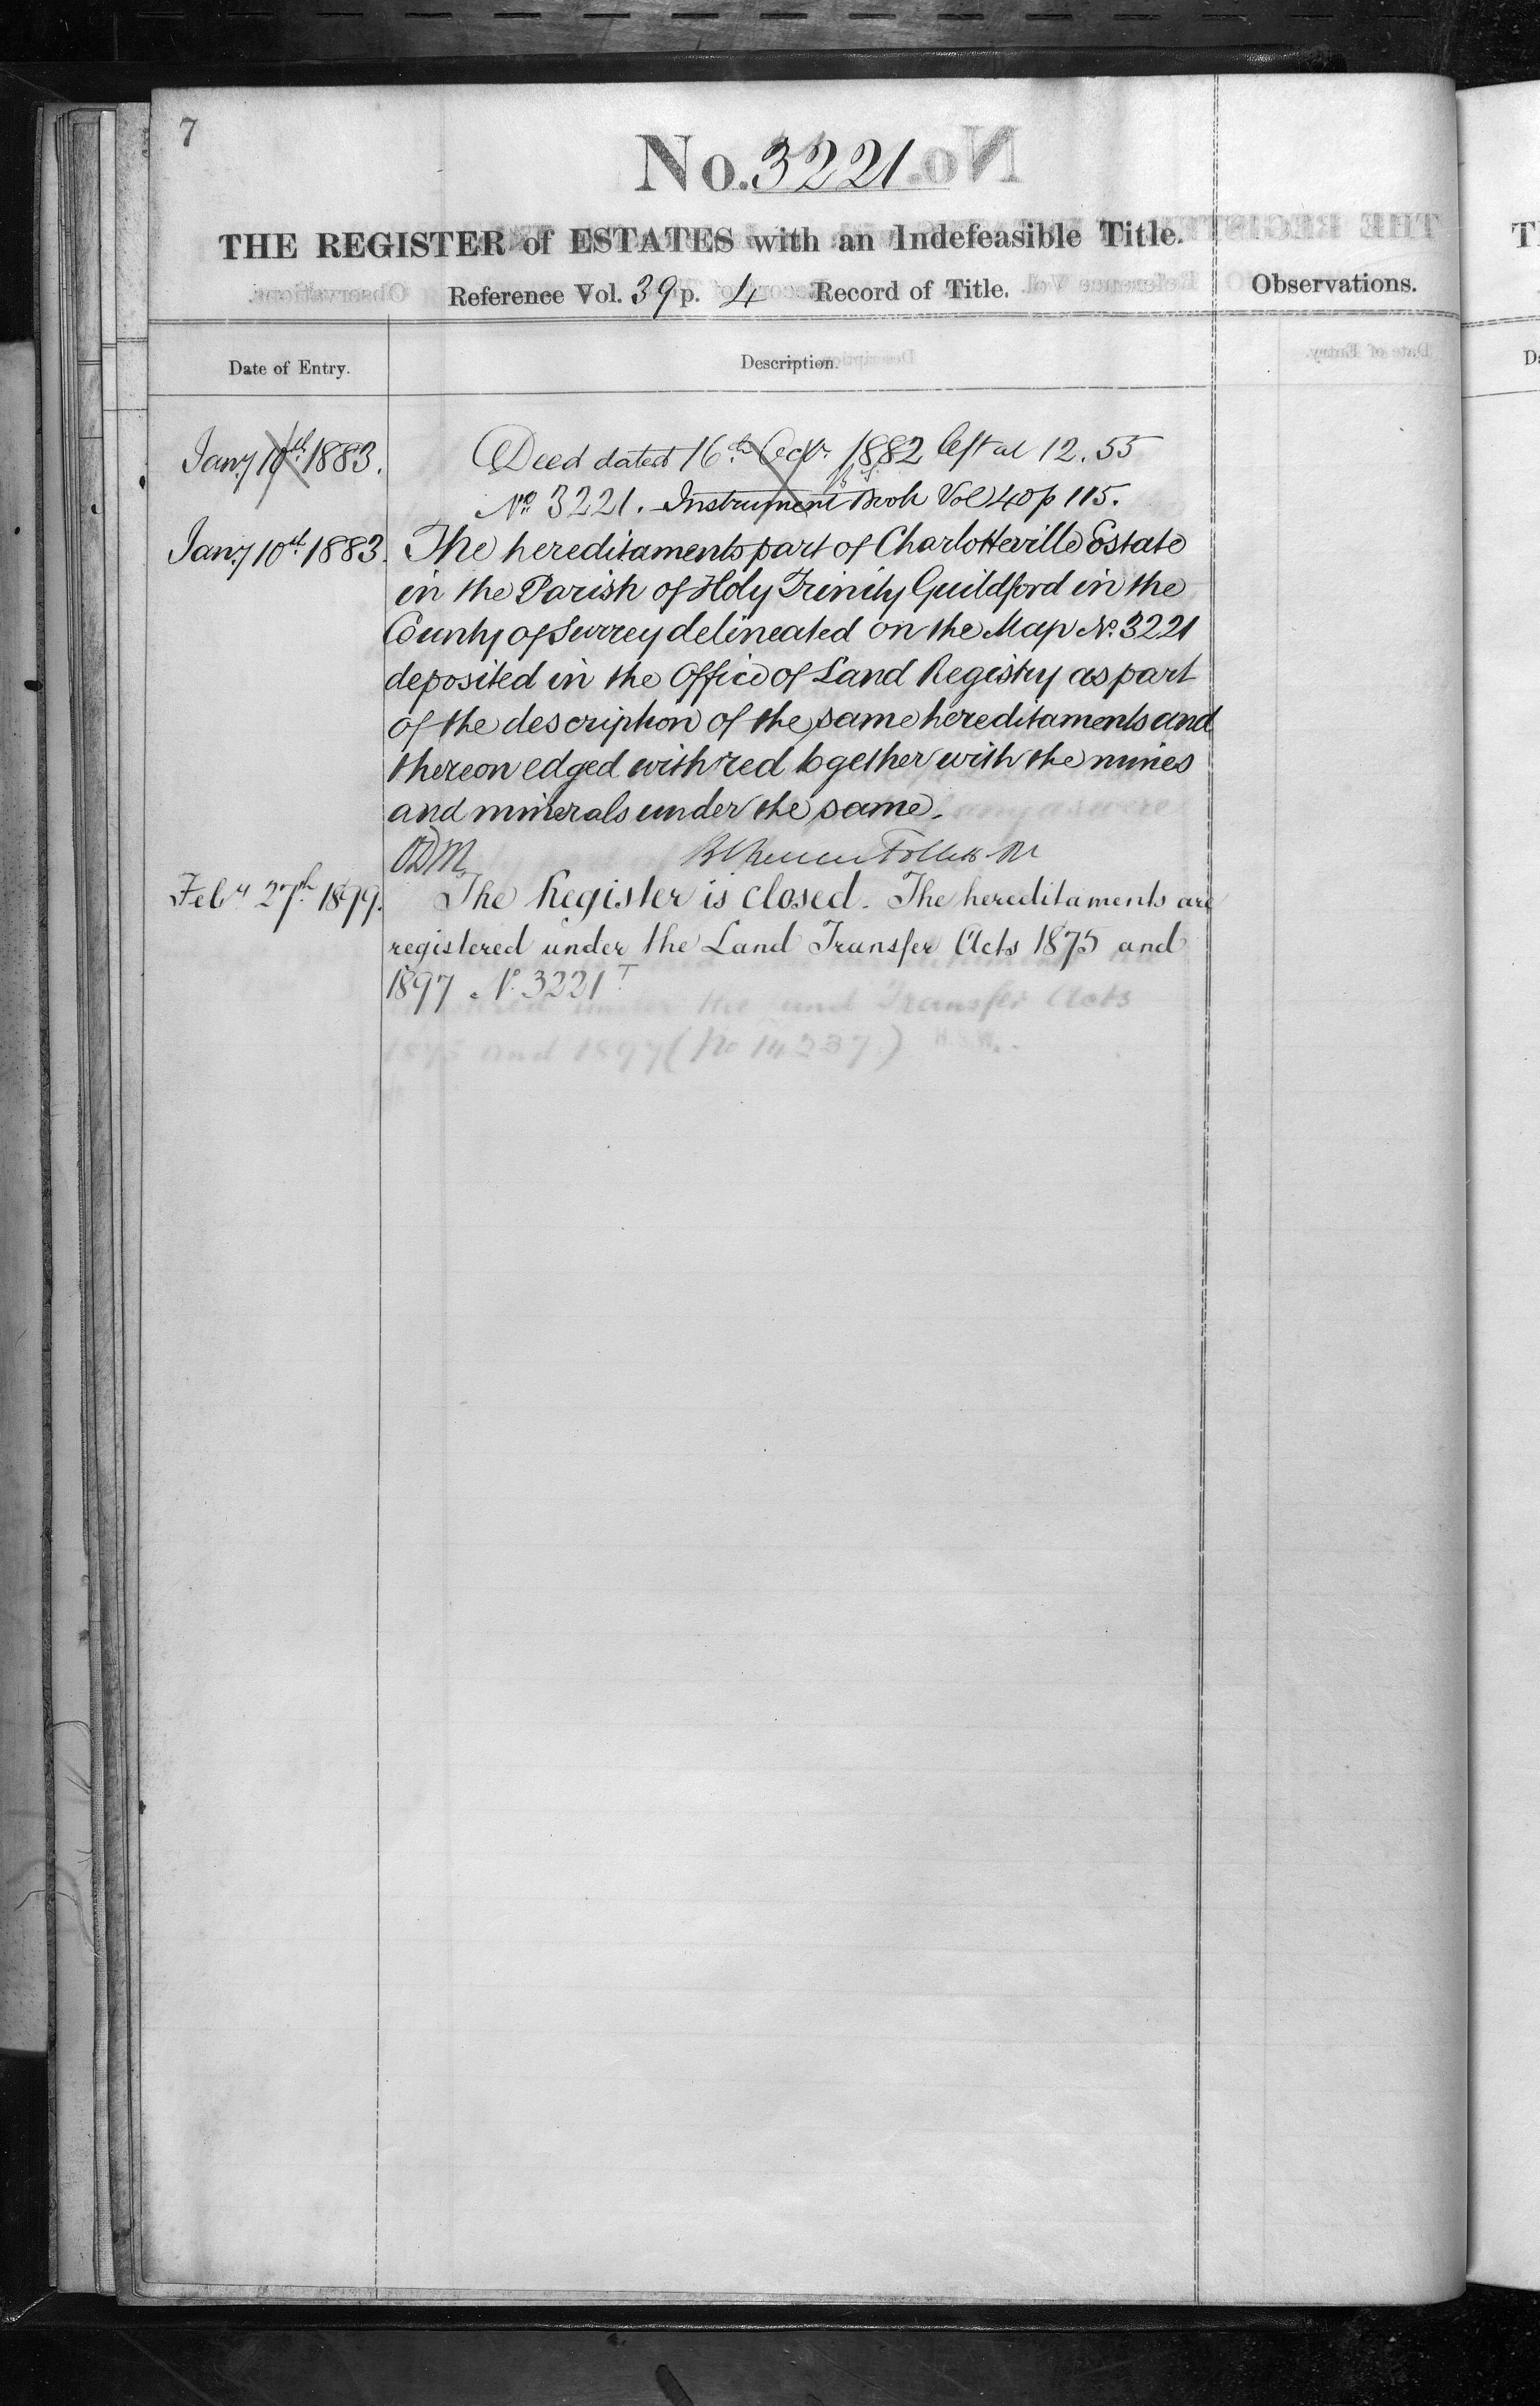 7
No. 3221
THE REGISTER of ESTATES with an Indefeasible Title.
Reference Vol. 39 p. 4 Record of Title.
Observations.
Date of Entry.
Description.
Jany 10th 1883. Deed dated 16th 1882 left at 12.55
No 3221. Instrument Book Vol 40 p 115.
Jany 10th 1883. The hereditaments part of Charlotteville Estate
in the Parish of Holy Trinity Guildford in the
County of Surrey delineated on the Map No. 3221
deposited in the Office of Land Registry as part
of the description of the same hereditaments and
thereon edged with red together with the mines
and minerals under the same.
ODM
Feby 27th 1899. The Register is closed. The hereditaments are
registered under the Land Transfer Acts 1875 and
1897 No. 3221 T